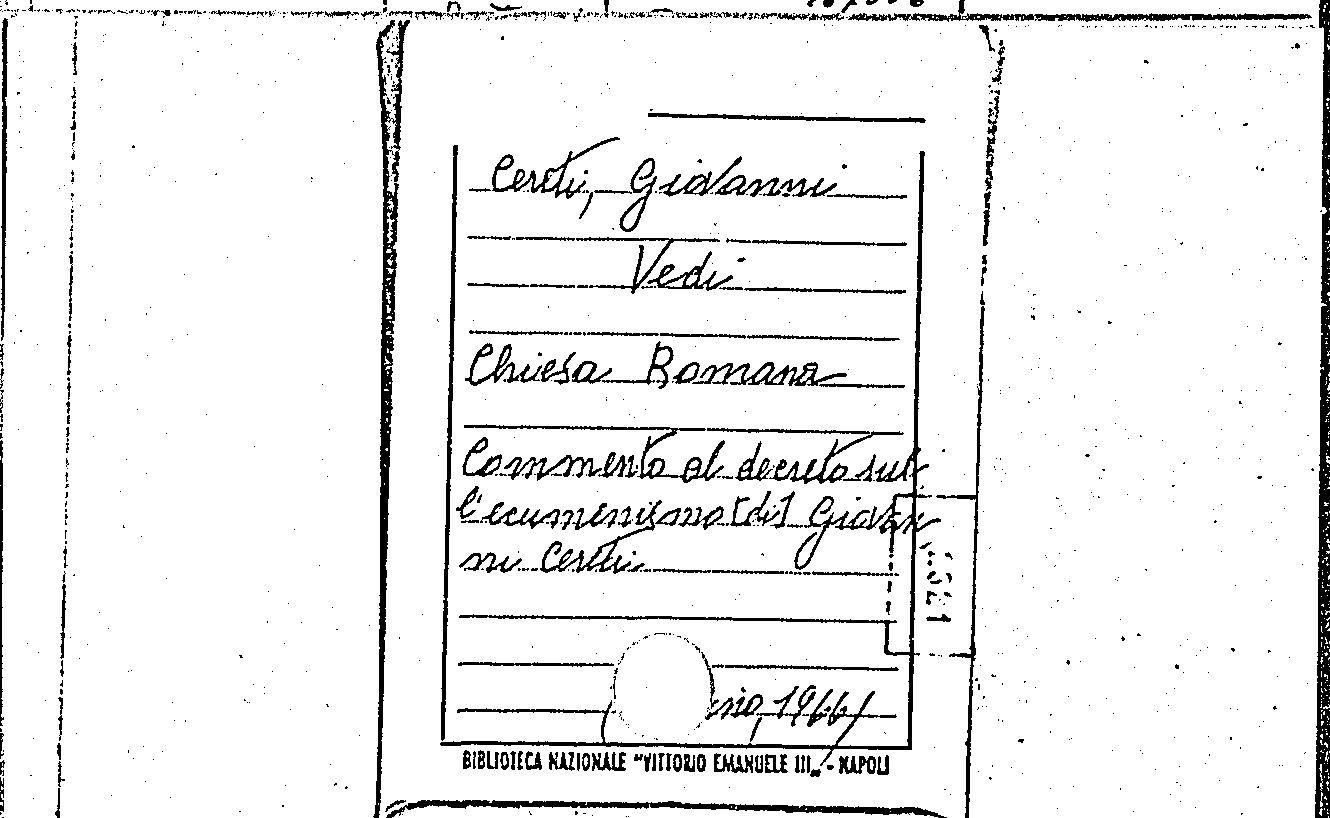 Cereti, Giovanni
Vedi
Chiesa Romana
Commento al decreto sul-
l'ecumenismo [di] Giovan
ni Cereti
1966)
BIBLIOTECA NAZIONALE "VITTORIO EMANUELE III„ - NAPOLI